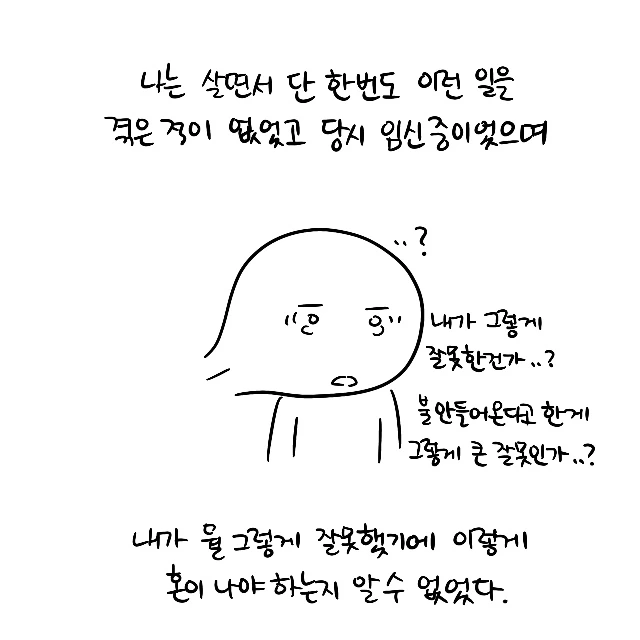 나는 살면서 단 한번도 이런 일을
겪은 적이 없었고 당시 임신중이었으며
..?
내가 그렇게
잘못한건가..?
불 안들어온다고 한게
그렇게 큰 잘못인가..?
내가 뭘 그렇게 잘못했기에 이렇게
혼이 나야 하는지 알 수 없었다.